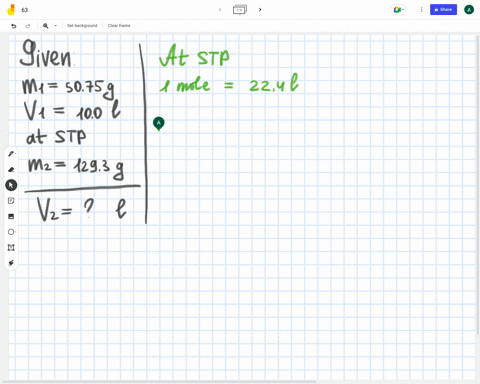 63
Share
A
Set background
Clear frame
Given:
m1 = 50.75 g
V1 = 10.0 l
at STP
m2 = 129.3 g
V2 = ? l
At STP
1 mole = 22.4 l
A